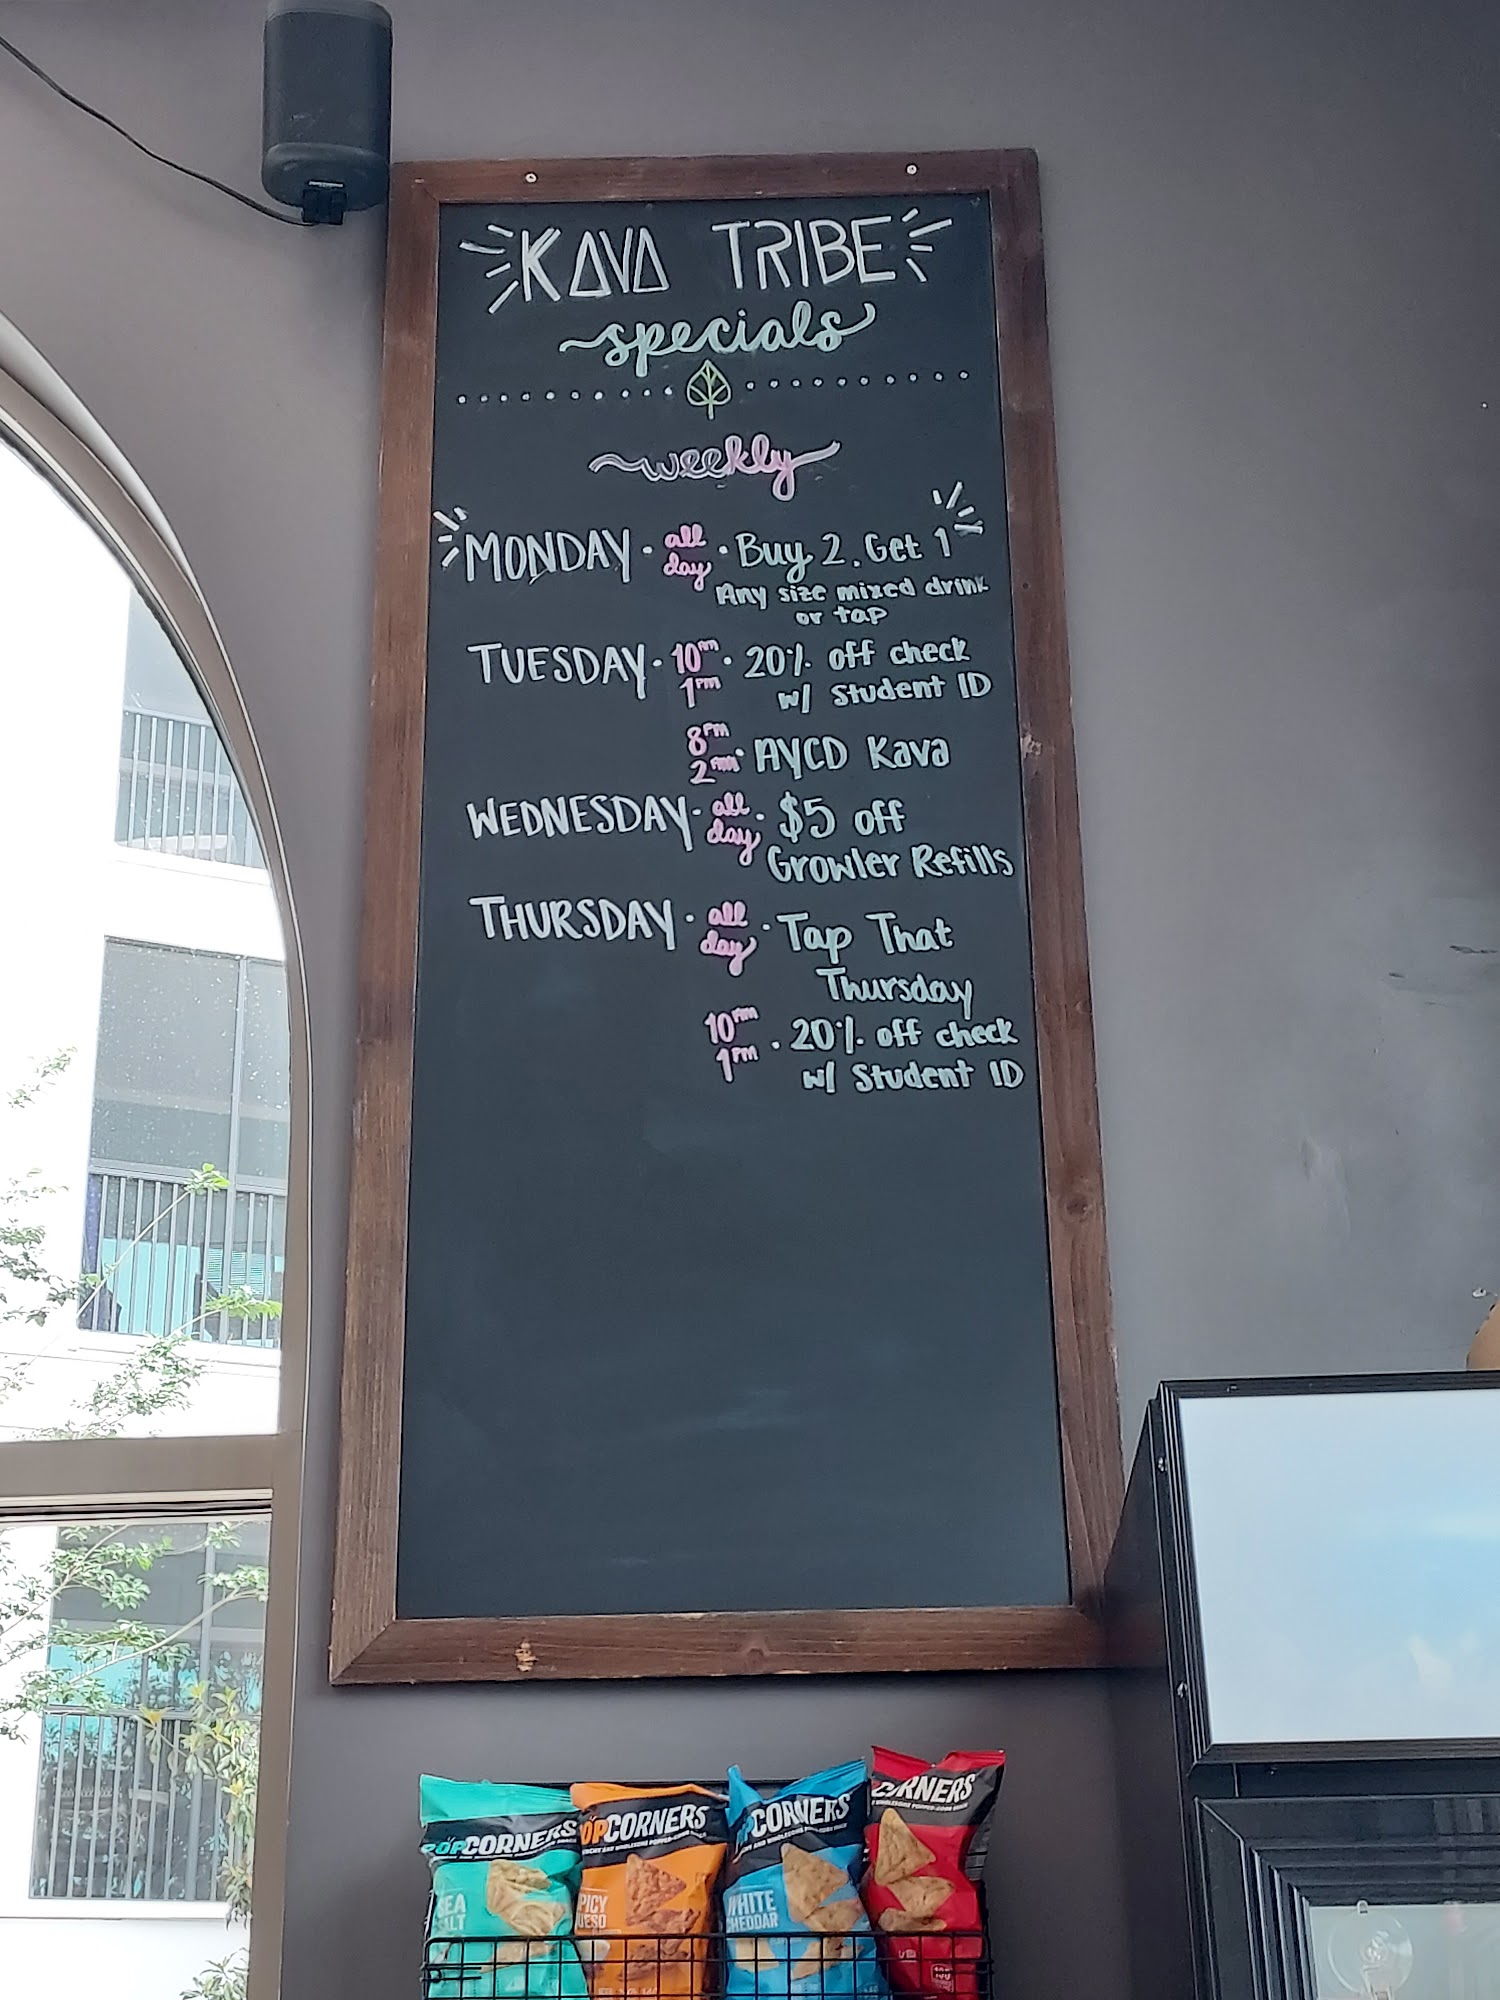 KAVA TRIBE
specials
weekly
MONDAY · all day · Buy 2. Get 1
Any size mixed drink
or tap
TUESDAY · 10am 1pm · 20% off check
w/ Student ID
8pm 2am · AYCD Kava
WEDNESDAY · all day · $5 off
Growler Refills
THURSDAY · all day · Tap That
Thursday
10am 1pm · 20% off check
w/ Student ID
POPCORNERS
SEA
SALT
OPCORNERS
PICY
UESO
PCORNERS
WHITE
CHEDDAR
CORNERS